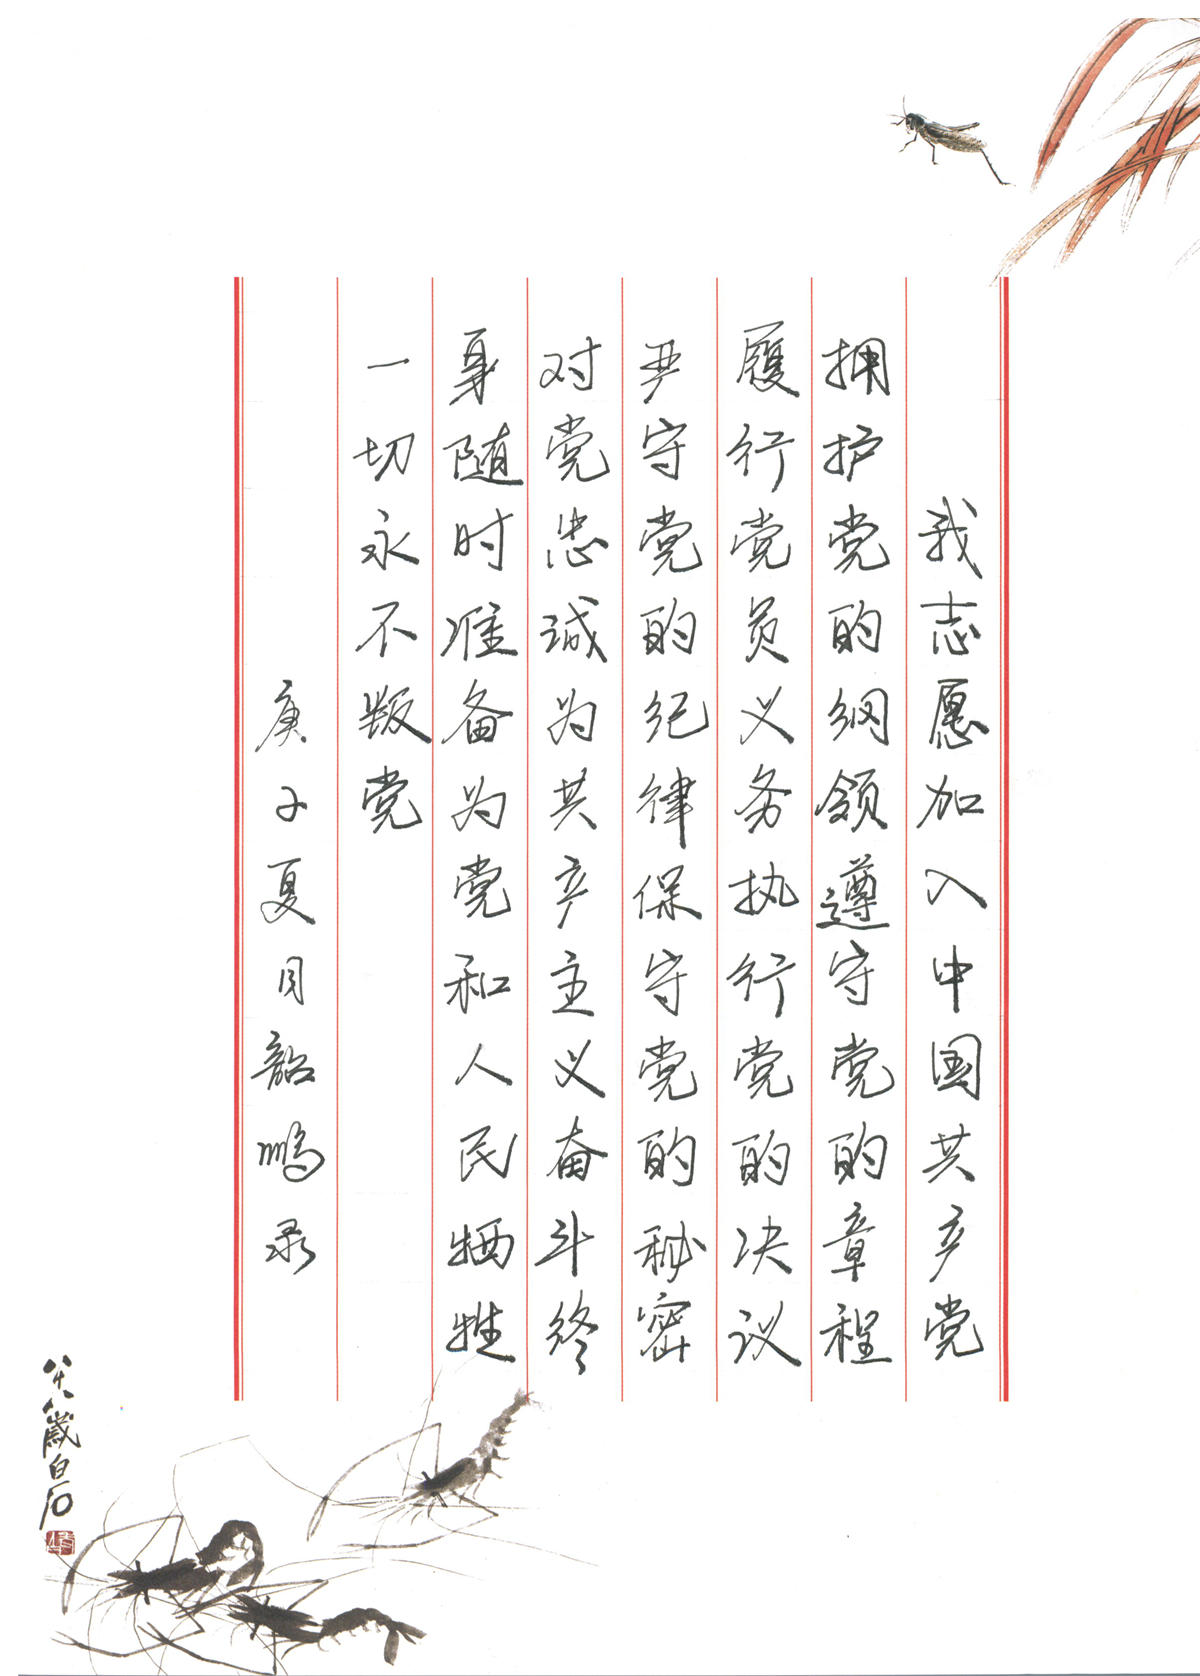 我志愿加入中国共产党
拥护党的纲领遵守党的章程
履行党员义务执行党的决议
严守党的纪律保守党的秘密
对党忠诚为共产主义奋斗终
身随时准备为党和人民牺牲
一切永不叛党
庚子夏月韶鹏录
八十八岁白石